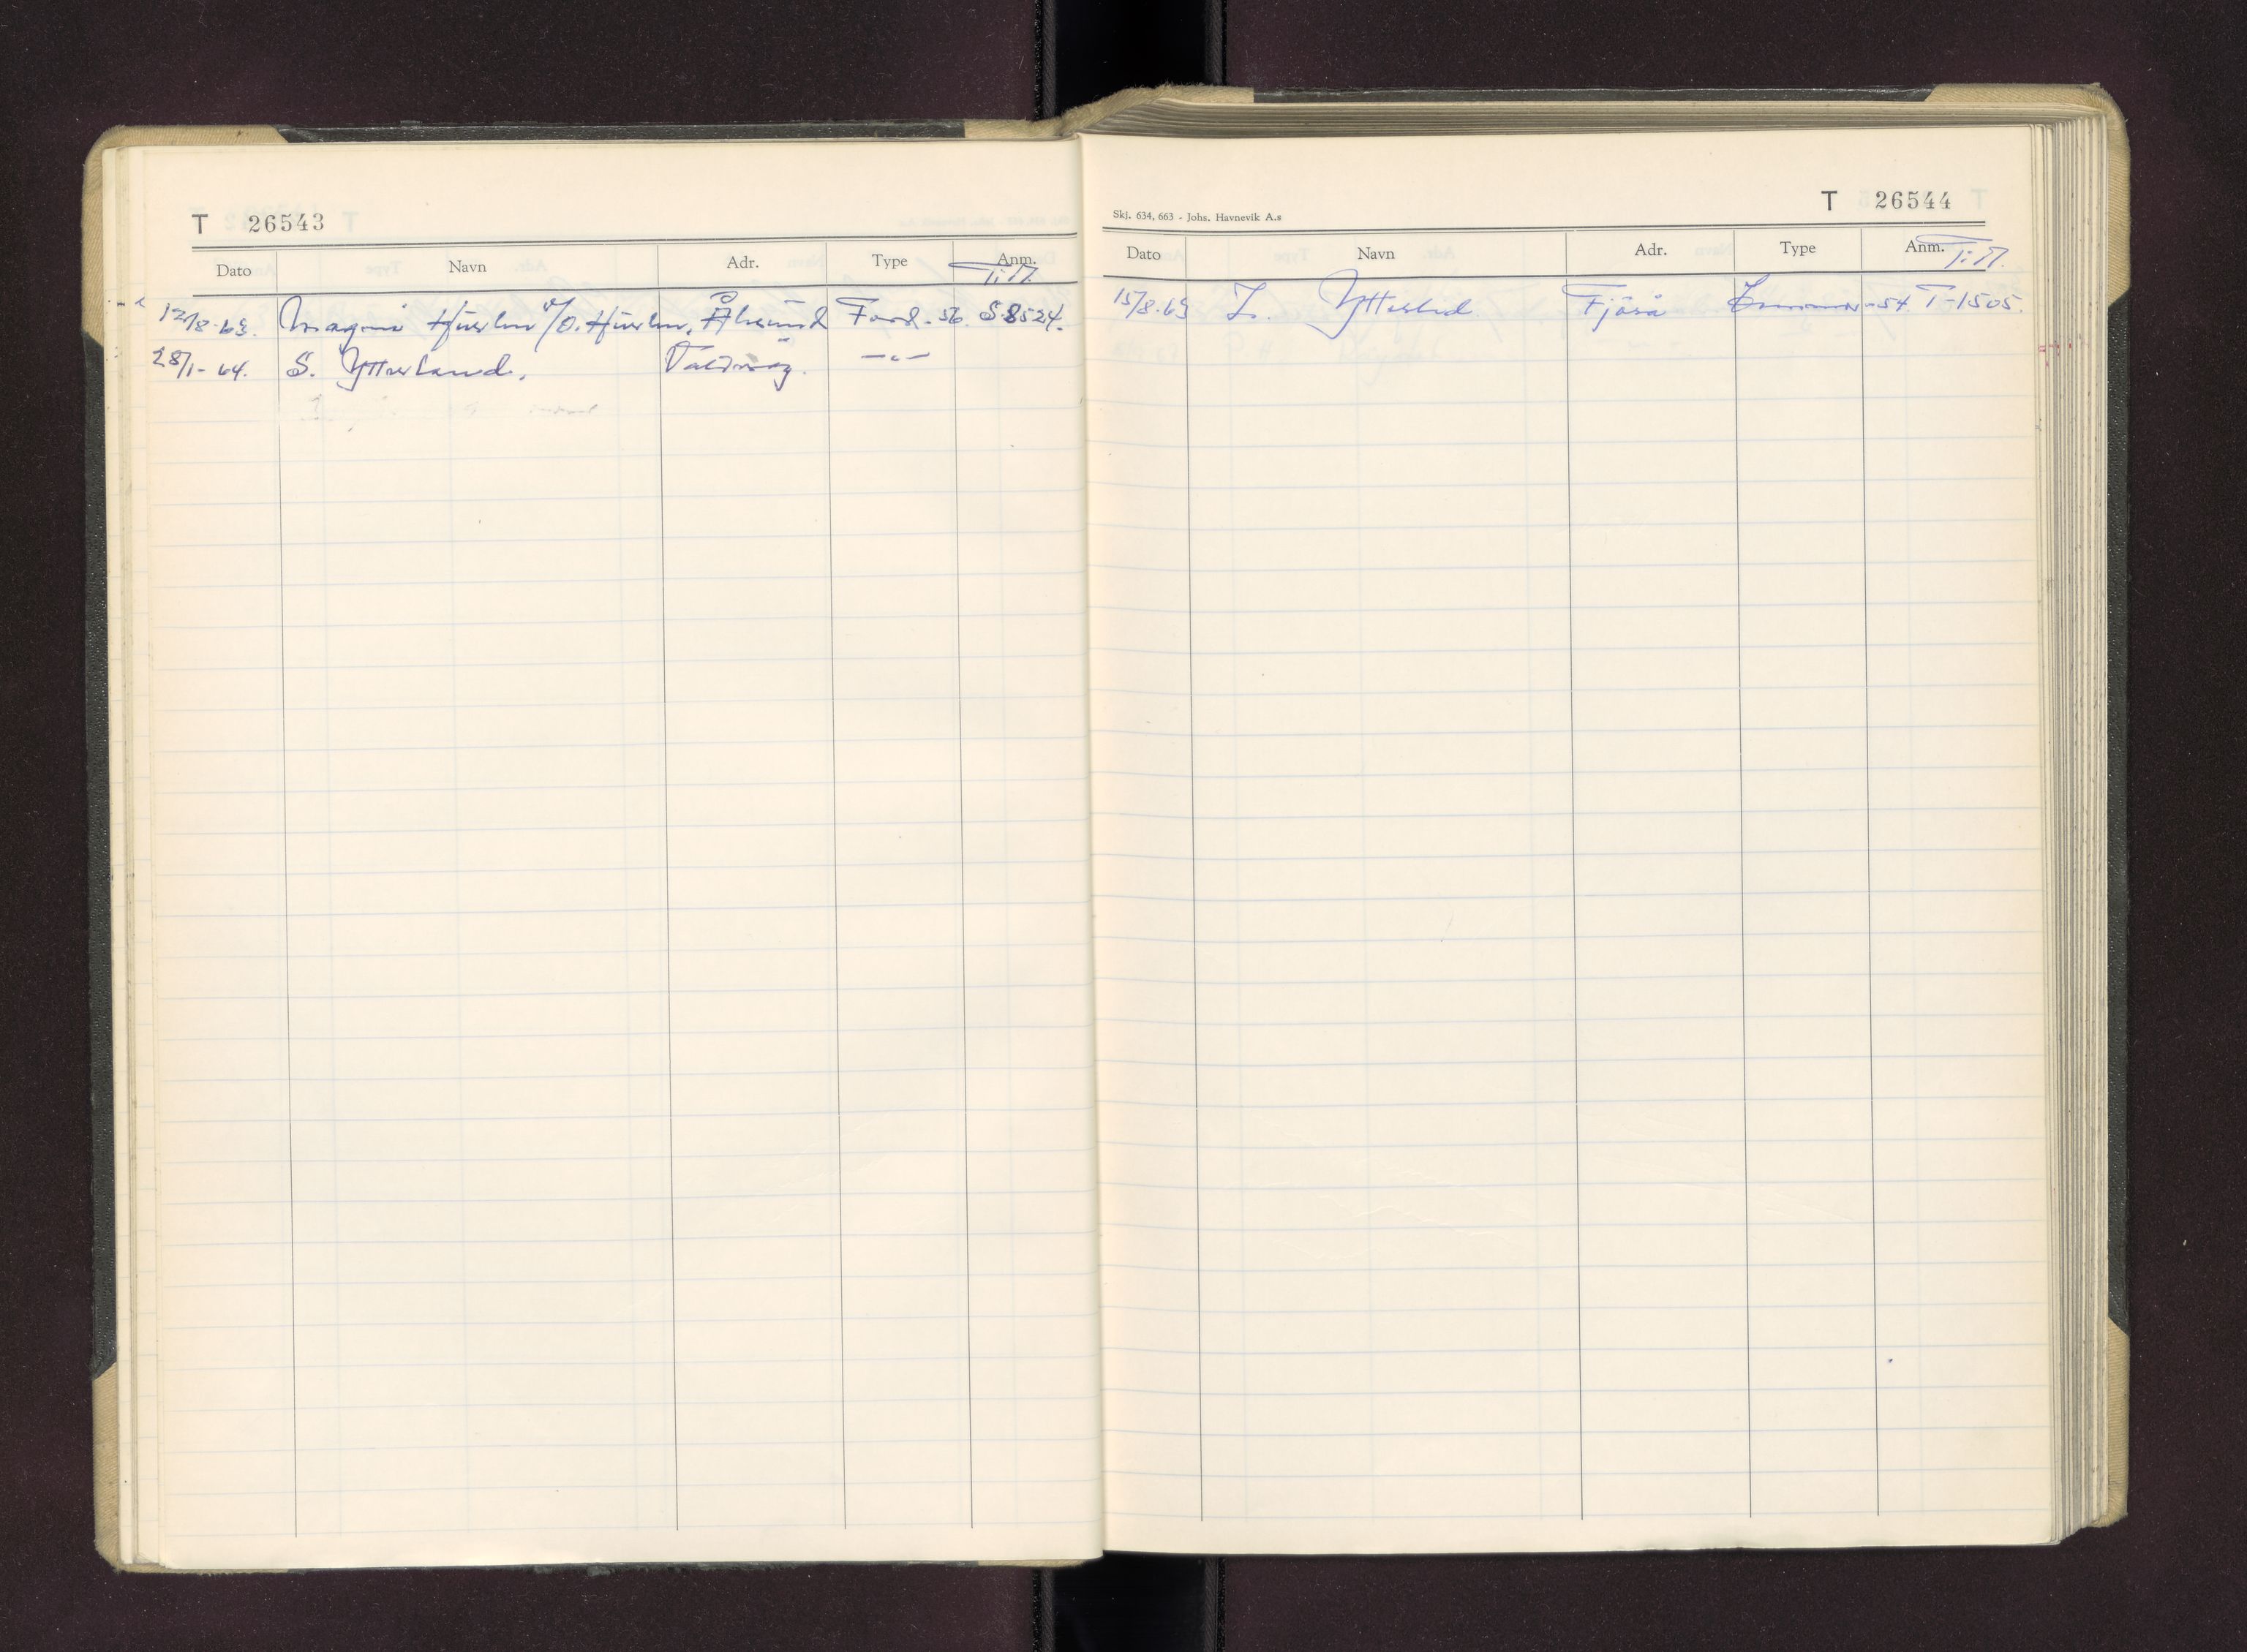 T 26543
Dato Navn Adr. Type Anm.
Till.
12/8-63. Magne v/O. Ålesund Ford-56 S-8524.
28/1-64. S. Ytterland, Valdrvåg. —"—
T 26544
Skj. 634, 663 - Johs. Havnevik A.s
Dato Navn Adr. Type Anm.
Till.
15/8-63 Fjørå -54 T-1505.